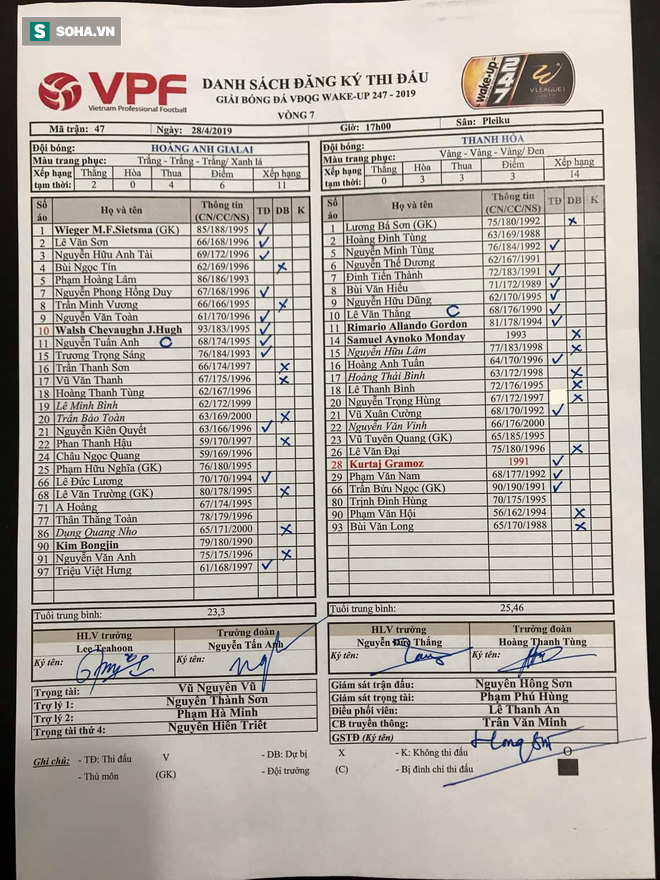 S SOHA.VN
VPF
Vietnam Professional Football
DANH SÁCH ĐĂNG KÝ THI ĐẤU
GIẢI BÓNG ĐÁ VĐQG WAKE-UP 247 - 2019
VÒNG 7
wake-up 247
V.LEAGUE 1
Mã trận: 47 Ngày: 28/4/2019 Giờ: 17h00 Sân: Pleiku
Đội bóng: HOÀNG ANH GIALAI
Màu trang phục: Trắng - Trắng - Trắng/ Xanh lá
Xếp hạng tạm thời: Thắng Hòa Thua Điểm Xếp hạng
2 0 4 6 11
Số áo Họ và tên Thông tin (CN/CC/NS) TĐ DB K
1 Wieger M.F.Sietsma (GK) 85/188/1995 ✓
2 Lê Văn Sơn 66/168/1996 ✓
3 Nguyễn Hữu Anh Tài 69/172/1996 ✓
4 Bùi Ngọc Tín 62/169/1996 x
5 Phạm Hoàng Lâm 86/186/1993
7 Nguyễn Phong Hồng Duy 67/168/1996 ✓
8 Trần Minh Vương 66/166/1995 x
9 Nguyễn Văn Toàn 61/170/1996 ✓
10 Walsh Chevaughn J.Hugh 93/183/1995 ✓
11 Nguyễn Tuấn Anh C 68/174/1995 ✓
15 Trương Trọng Sáng 76/184/1993 ✓
16 Trần Thanh Sơn 66/174/1997 x
17 Vũ Văn Thanh 67/175/1996 x
18 Hoàng Thanh Tùng 62/167/1996
19 Lê Minh Bình 62/172/1999
20 Trần Bảo Toàn 63/169/2000 x
21 Nguyễn Kiên Quyết 63/166/1996 ✓
22 Phan Thanh Hậu 59/170/1997 x
24 Châu Ngọc Quang 59/170/1996
25 Phạm Hữu Nghĩa (GK) 76/180/1995
66 Lê Đức Lương 70/170/1994 ✓
68 Lê Văn Trường (GK) 80/178/1995 x
71 A Hoàng 67/174/1995
77 Thân Thắng Toàn 78/179/1996
86 Dụng Quang Nho 65/171/2000 x
90 Kim Bongjin 79/180/1990
91 Nguyễn Văn Anh 75/175/1996 x
97 Triệu Việt Hưng 61/168/1997 ✓
Tuổi trung bình: 23,3
HLV trưởng Trưởng đoàn
Lee Teahoon Nguyễn Tấn Anh
Ký tên: Ký tên:
Trọng tài: Vũ Nguyên Vũ
Trợ lý 1: Nguyễn Thành Sơn
Trợ lý 2: Phạm Hà Minh
Trọng tài thứ 4: Nguyễn Hiền Triết
Đội bóng: THANH HÓA
Màu trang phục: Vàng - Vàng - Vàng/ Đen
Xếp hạng tạm thời: Thắng Hòa Thua Điểm Xếp hạng
0 3 3 3 14
Số áo Họ và tên Thông tin (CN/CC/NS) TĐ DB K
1 Lương Bá Sơn (GK) 75/180/1992 x
2 Hoàng Đình Tùng 63/169/1988
5 Nguyễn Minh Tùng 76/184/1992 ✓
6 Nguyễn Thế Dương 62/167/1991
7 Đinh Tiến Thành 72/183/1991 ✓
8 Bùi Văn Hiếu 71/172/1989 ✓
9 Nguyễn Hữu Dũng 62/170/1995 ✓
10 Lê Văn Thắng C 68/176/1990 ✓
11 Rimario Allando Gordon 81/178/1994 ✓
14 Samuel Aynoko Monday 1993 x
15 Nguyễn Hữu Lâm 77/183/1998 x
16 Hoàng Anh Tuấn 64/170/1996 ✓
17 Hoàng Thái Bình 63/172/1998 x
18 Lê Thanh Bình 72/176/1995 x
20 Nguyễn Trọng Hùng 67/172/1997 x
21 Vũ Xuân Cường 68/170/1992 ✓
22 Nguyễn Văn Vinh 66/176/2000
23 Vũ Tuyên Quang (GK) 65/185/1995
26 Lê Văn Đại 75/180/1996 x
28 Kurtaj Gramoz 1991 ✓
29 Phạm Văn Nam 68/177/1992 ✓
66 Trần Bửu Ngọc (GK) 90/190/1991 ✓
80 Trịnh Đình Hùng 70/175/1995
90 Phạm Văn Hội 56/162/1994 x
93 Bùi Văn Long 65/170/1988 x
Tuổi trung bình: 25,46
HLV trưởng Trưởng đoàn
Nguyễn Đức Thắng Hoàng Thanh Tùng
Ký tên: Ký tên:
Giám sát trận đấu: Nguyễn Hồng Sơn
Giám sát trọng tài: Phạm Phú Hùng
Điều phối viên: Lê Thanh An
CB truyền thông: Trần Văn Minh
GSTĐ (Ký tên)
Ghi chú: - TĐ: Thi đấu V - DB: Dự bị X - K: Không thi đấu O
- Thủ môn (GK) - Đội trưởng (C) - Bị đình chỉ thi đấu